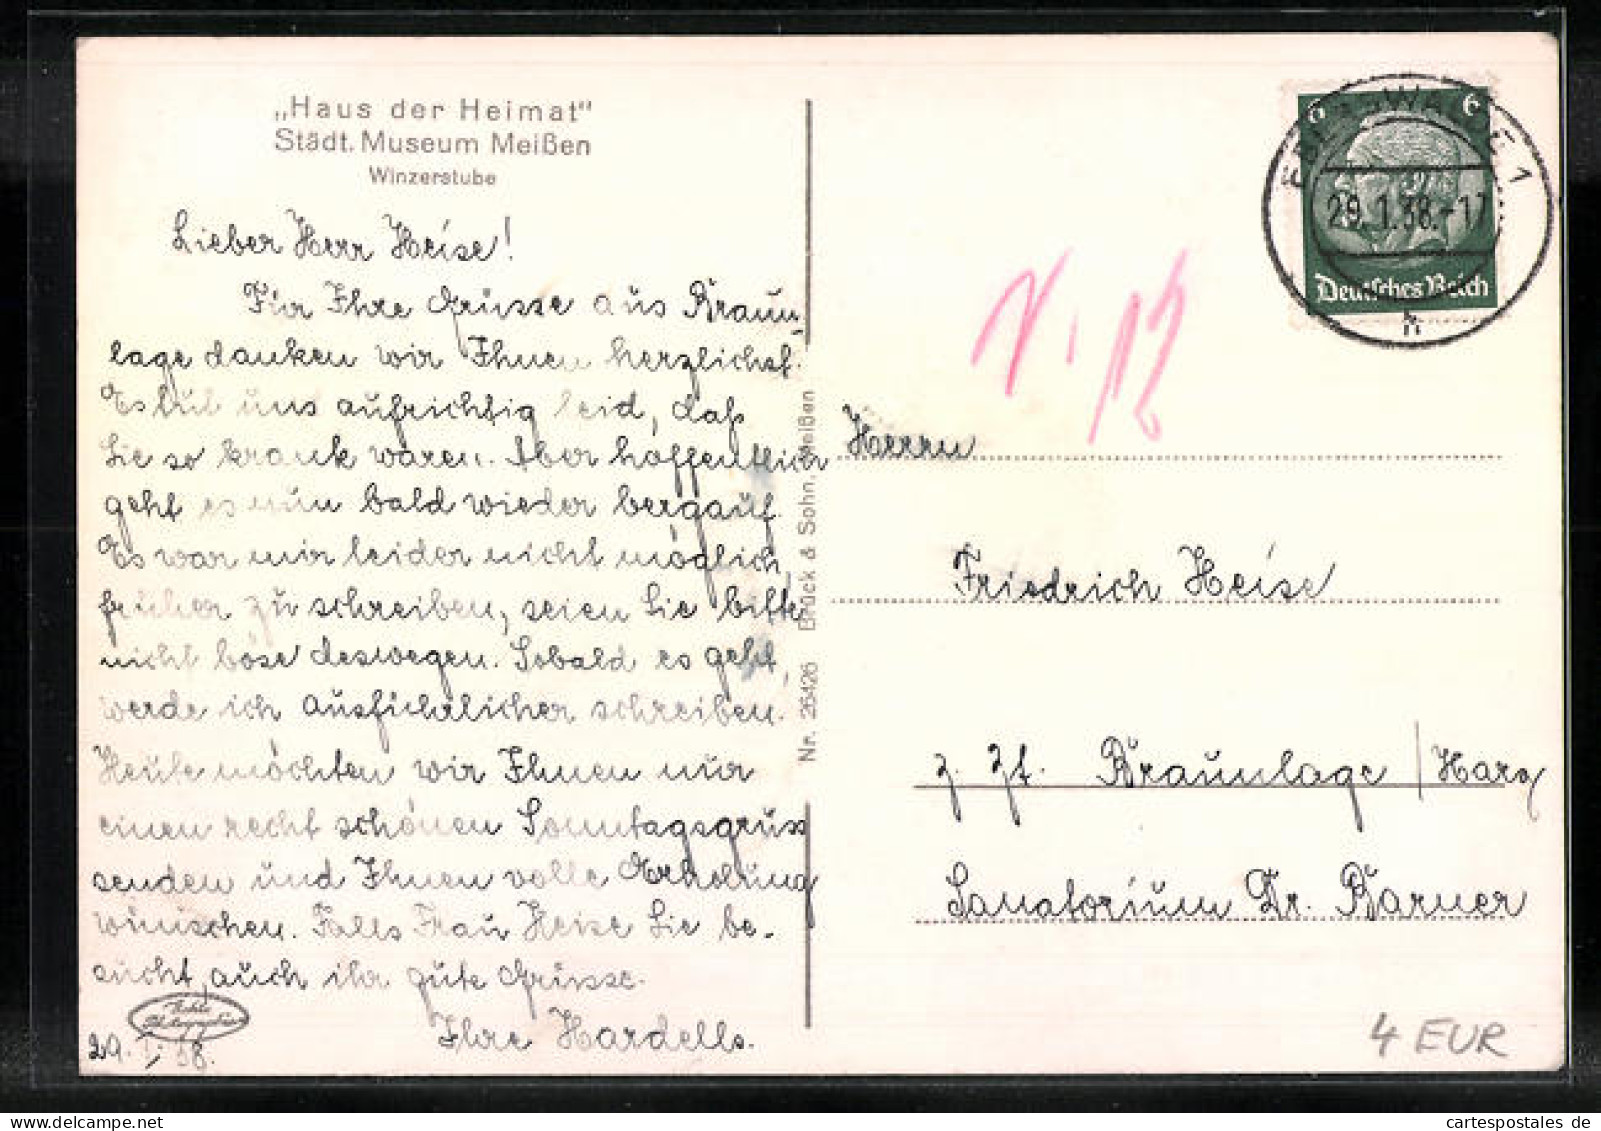 „Haus der Heimat"
Städt. Museum Meißen
Winzerstube
Lieber Herr Heise!
Für Ihre Grüsse aus Braun-
lage danken wir Ihnen herzlichst.
Es tut uns aufrichtig leid, daß
Sie so krank waren. Aber hoffentlich
geht es nun bald wieder bergauf.
Es war mir leider nicht möglich,
früher zu schreiben, seien Sie bitte
nicht böse deswegen. Sobald es geht,
werde ich ausführlicher schreiben.
Heute möchten wir Ihnen nur
einen recht schönen Sonntagsgruss
senden und Ihnen volle Erholung
wünschen. Falls Frau Heise Sie be-
sucht, auch ihr gute Grüsse.
Ihre Hardells.
29. 1. 38.
Echte
Photographie
Nr. 26426 Brück & Sohn, Meißen
EBERSWALDE 1
29.1.38.-17
h
6 6
Deutsches Reich
Herrn
Friedrich Heise
z. Zt. Braunlage / Harz
Sanatorium Dr. Barner
4 EUR
cartespostales de